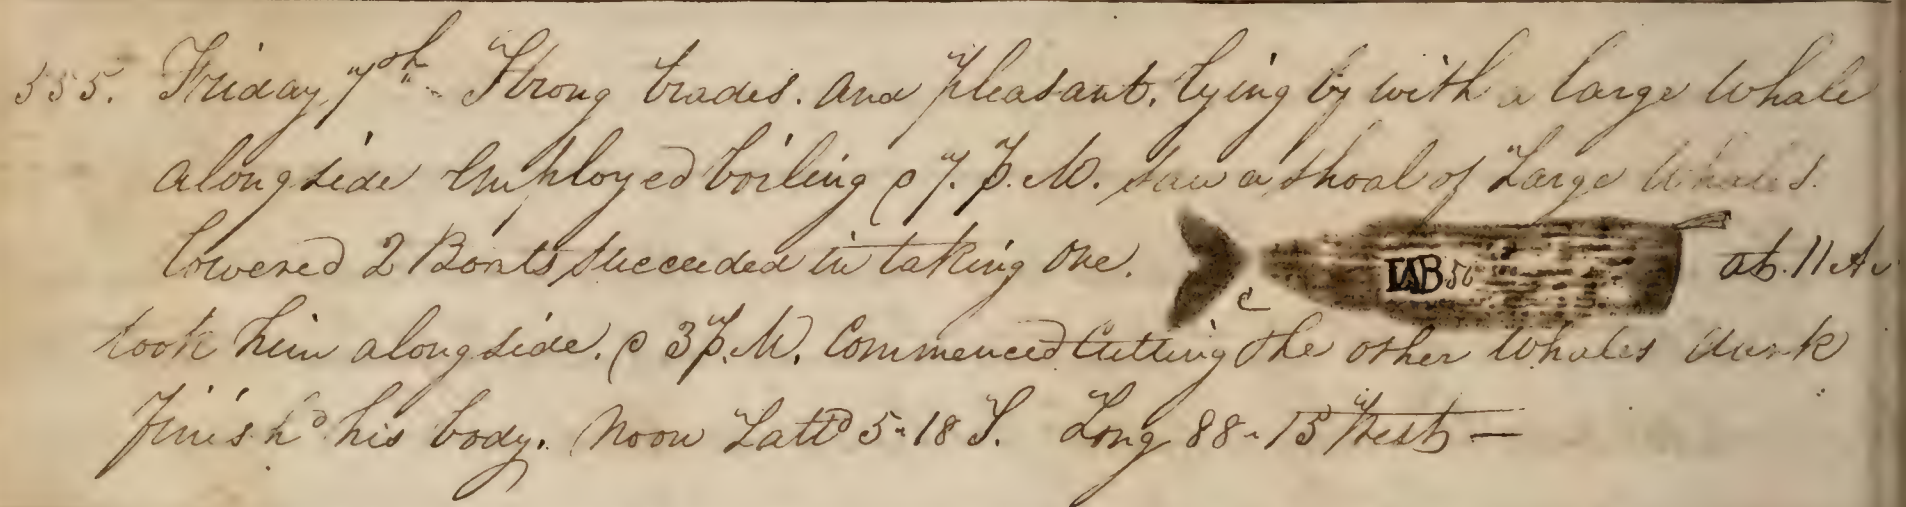 555. Friday 7th Strong trades. and pleasant. lying by with a large Whale
alongside Employed boiling @ 7. P. M. saw a shoal of Large Whales.
lowered 2 Boats succeeded in taking One. 50 at. 11 A
took him alongside. @ 3 P. M. Commenced Cutting the other Whales
finish'd his body. Noon Lattd 5-18 S. Long 88-15 West—